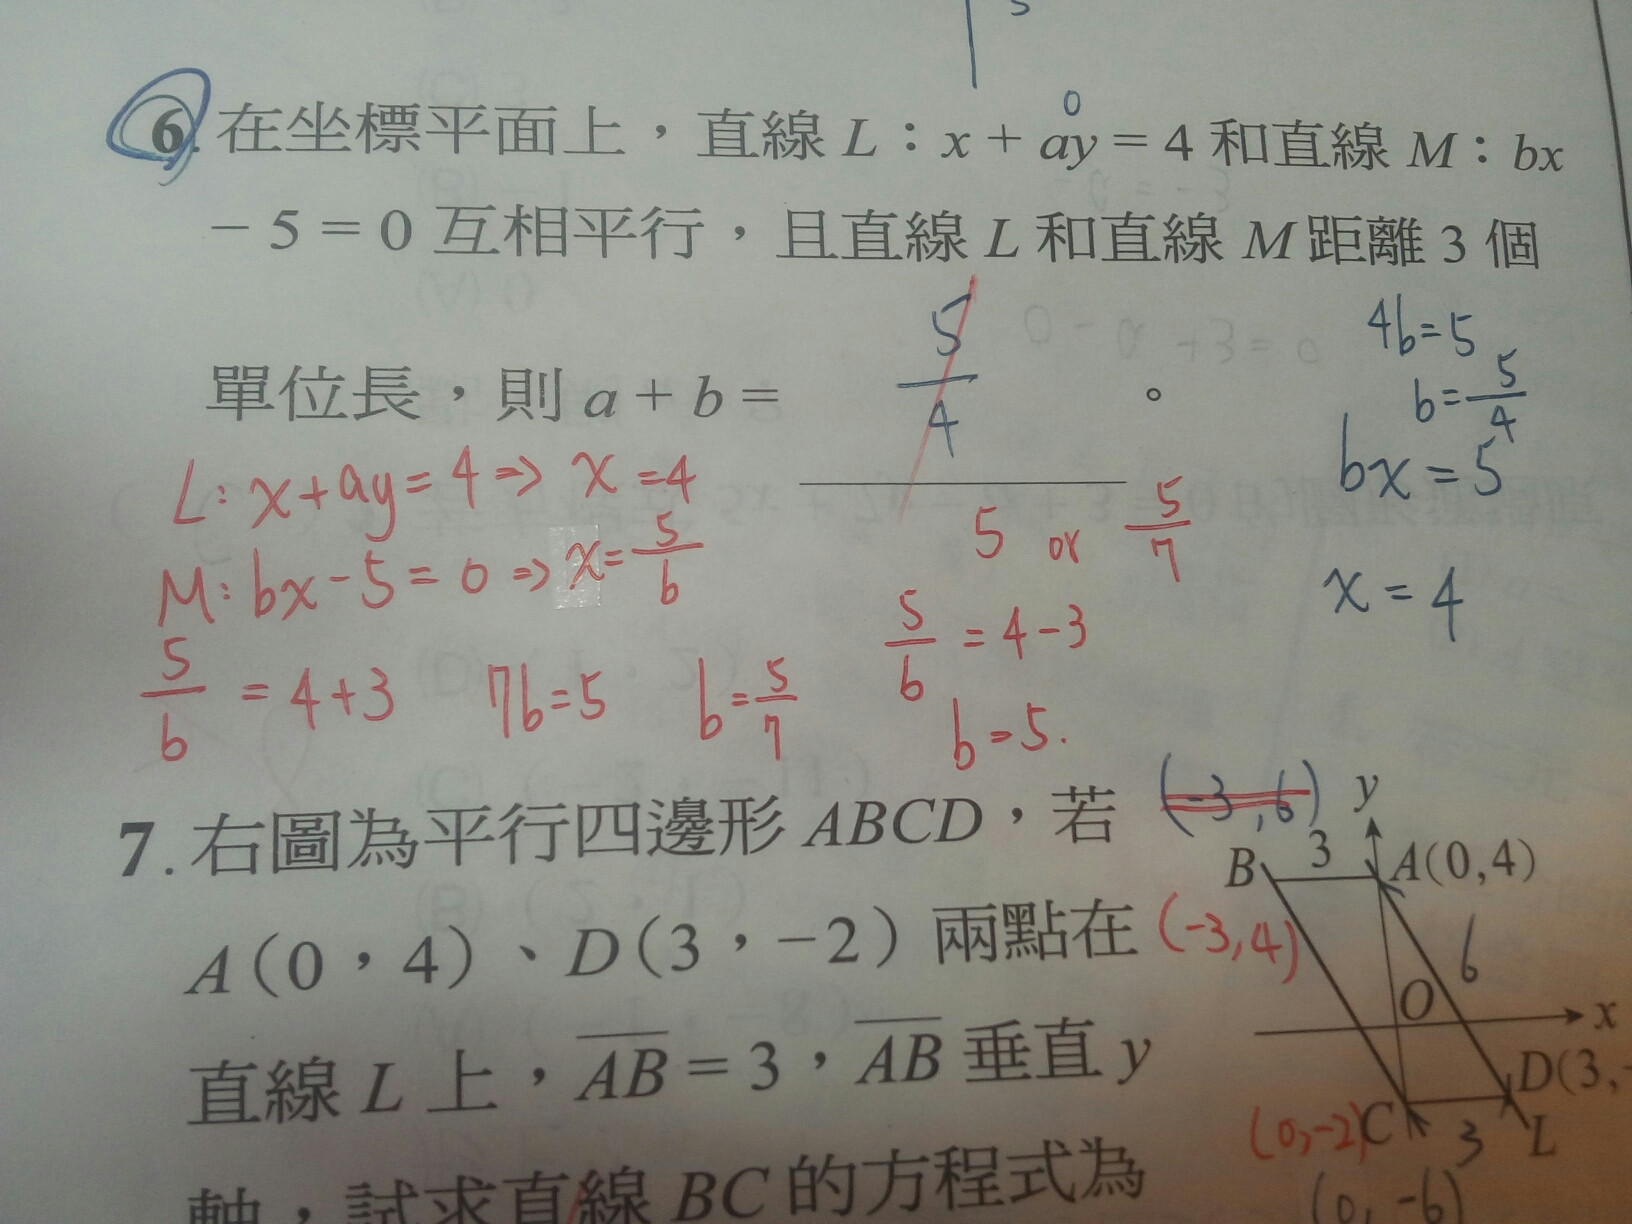 5
0
6. 在坐標平面上，直線 L：x + ay = 4 和直線 M：bx
－5 = 0 互相平行，且直線 L 和直線 M 距離 3 個
4b=5
b=5/4
單位長，則 a + b = 5/4 。
bx=5
L: x+ay=4 => x=4
5 or 5/7
M: bx-5=0 => x=5/b
x=4
5/b = 4+3 7b=5 b=5/7
5/b = 4-3
b=5.
7. 右圖為平行四邊形 ABCD，若
(-3,6) y
B 3 A(0,4)
A（0，4）、D（3，－2）兩點在
(-3,4) 6
O x
直線 L 上，AB = 3，AB 垂直 y
D(3,-
(0,-2) C 3 L
軸，試求直線 BC 的方程式為
(0,-6)